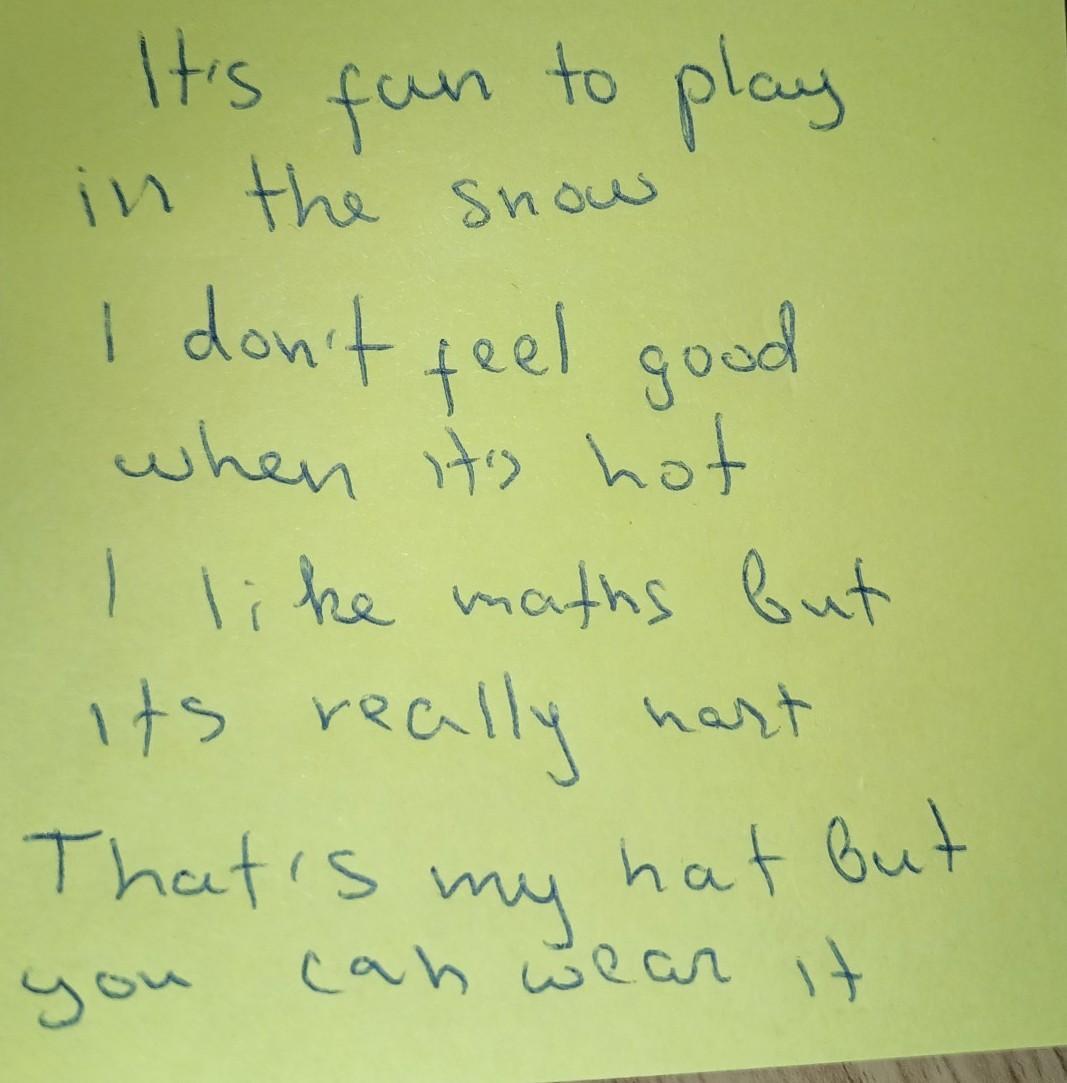 It's fun to play
in the snow
I don't feel good
when it's hot
I like maths but
its really hart
That's my hat but
you can wear it